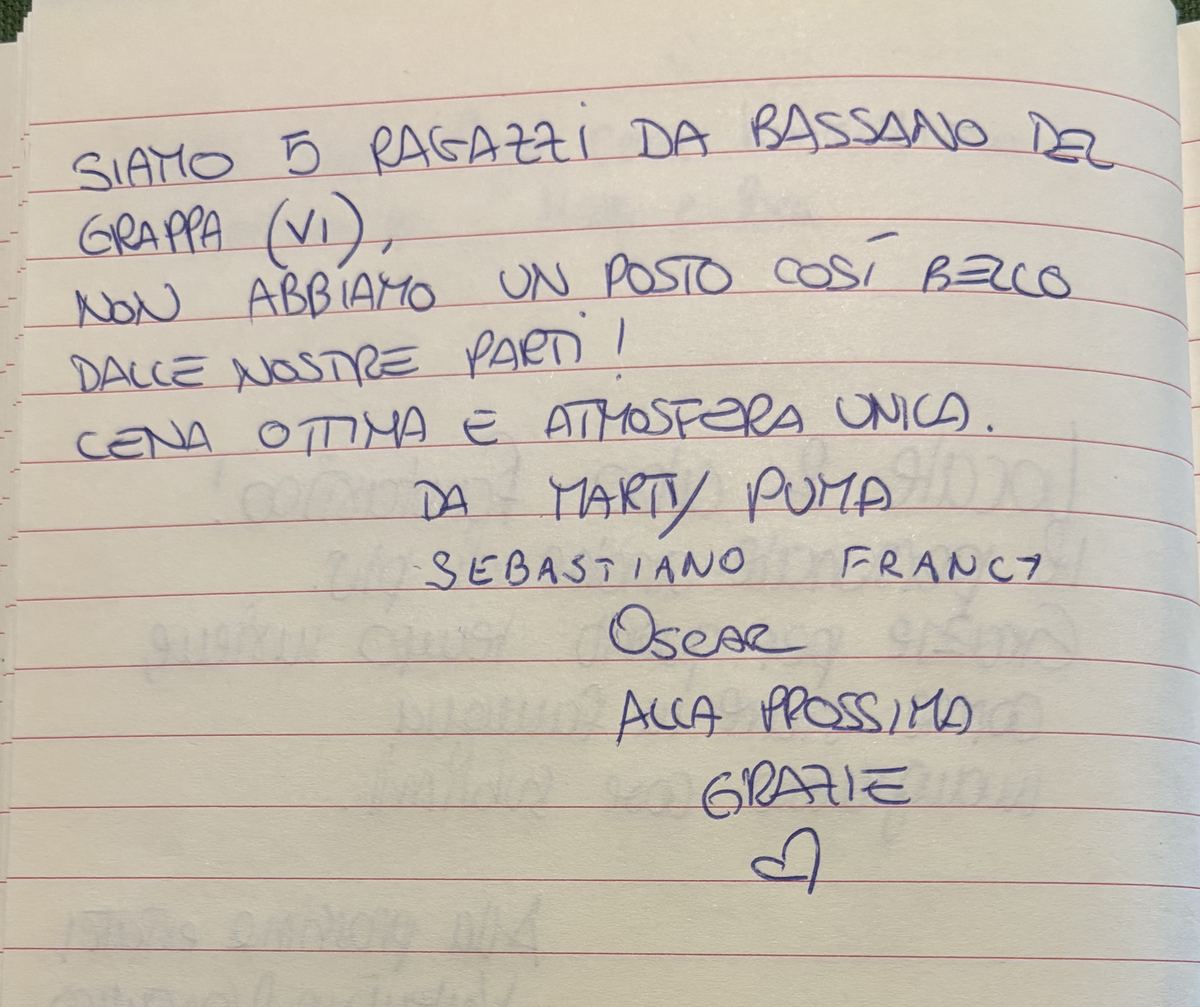 SIAMO 5 RAGAZZI DA BASSANO DEL
GRAPPA (VI),
NON ABBIAMO UN POSTO COSÍ BELLO
DALLE NOSTRE PARTI!
CENA OTTIMA E ATMOSFERA UNICA.
DA MARTY PUMA
SEBASTIANO FRANCY
OSCAR
ALLA PROSSIMA
GRAZIE